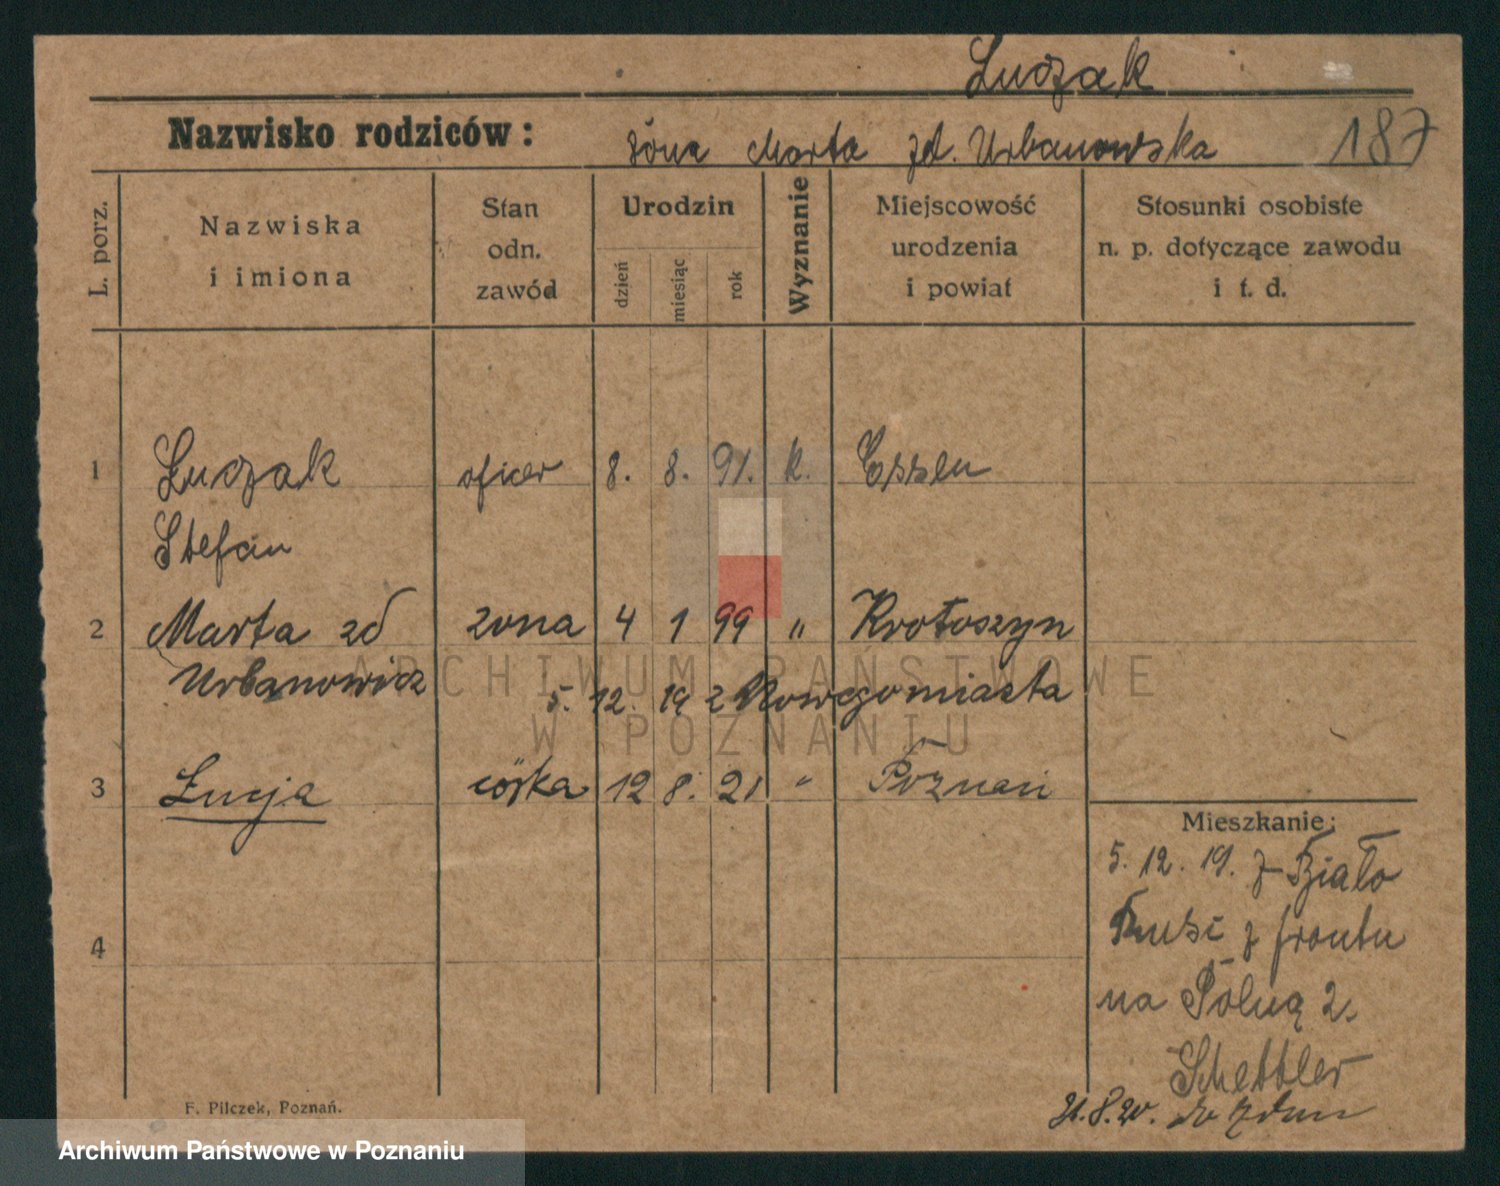 Luczak
Nazwisko rodziców: żona Marta zd. Urbanowska 187
L. porz. Nazwiska i imiona Stan odn. zawód Urodzin dzień miesiąc rok Wyznanie Miejscowość urodzenia i powiat Stosunki osobiste n. p. dotyczące zawodu i t. d.
1 Łuczak oficer 8. 8. 91. k. Essen
Stefan
2 Marta zd żona 4 1 99 " Krotoszyn
Urbanowicz 5. 12. 19 z Nowegomiasta
3 Łucja córka 12 8. 21 " Poznań
Mieszkanie:
5. 12. 19. z Biało
Rusi z frontu
4
na Polną 2.
Schettler
31.8.20. do Zdun
F. Pilczek, Poznań.
ARCHIWUM PAŃSTWOWE
W POZNANIU
Archiwum Państwowe w Poznaniu